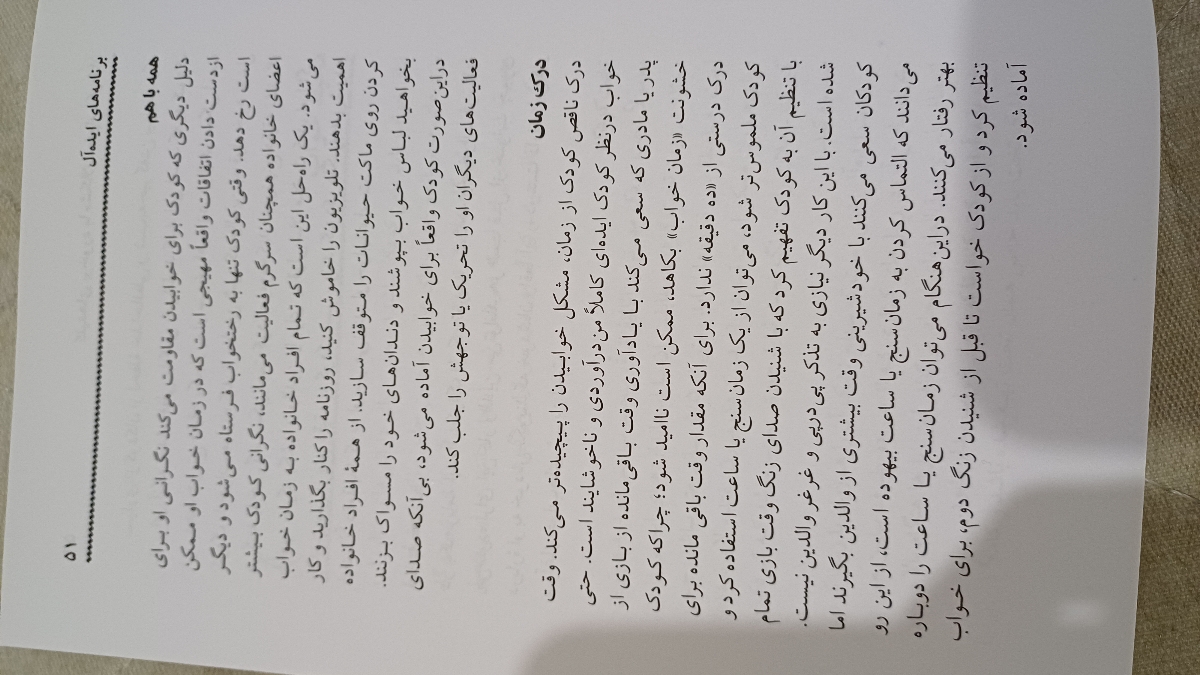 برنامه‌های ایده‌آل
۵۱
همه با هم
دلیل دیگری که کودک برای خوابیدن مقاومت می‌کند نگرانی او برای
ازدست دادن اتفاقات واقعاً مهیجی است که در زمان خواب او ممکن
است رخ دهد. وقتی کودک تنها به رختخواب فرستاه می‌شود و دیگر
اعضای خانواده همچنان سرگرم فعالیت می‌مانند، نگرانی کودک بیشتر
می‌شود. یک راه‌حل این است که تمام افراد خانواده به زمان خواب
اهمیت بدهند. تلویزیون را خاموش کنید، روزنامه را کنار بگذارید و کار
کردن روی ماکت حیوانات را متوقف سازید. از همهٔ افراد خانواده
بخواهید لباس خواب بپوشند و دندان‌های خود را مسواک بزنند.
دراین‌صورت کودک واقعاً برای خوابیدن آماده می‌شود، بی‌آنکه صدای
فعالیت‌های دیگران او را تحریک یا توجهش را جلب کند.
درک زمان
درک ناقص کودک از زمان، مشکل خوابیدن را پیچیده‌تر می‌کند. وقت
خواب درنظر کودک ایده‌ای کاملاً من‌درآوردی و ناخوشایند است. حتی
پدر یا مادری که سعی می‌کند با یادآوری وقت باقی‌مانده از بازی از
خشونت «زمان خواب» بکاهد، ممکن است ناامید شود؛ چراکه کودک
درک درستی از «ده دقیقه» ندارد. برای آنکه مقدار وقت باقی مانده برای
کودک ملموس‌تر شود، می‌توان از یک زمان‌سنج یا ساعت استفاده کرد و
با تنظیم آن به کودک تفهیم کرد که با شنیدن صدای زنگ وقت بازی تمام
شده است. با این کار دیگر نیازی به تذکر پی‌درپی و غرغر والدین نیست.
کودکان سعی می‌کنند با خودشیرینی وقت بیشتری از والدین بگیرند اما
می‌دانند که التماس کردن به زمان‌سنج یا ساعت بیهوده است، از این رو
بهتر رفتار می‌کنند. دراین‌هنگام می‌توان زمان‌سنج یا ساعت را دوباره
تنظیم کرد و از کودک خواست تا قبل از شنیدن زنگ دوم، برای خواب
آماده شود.